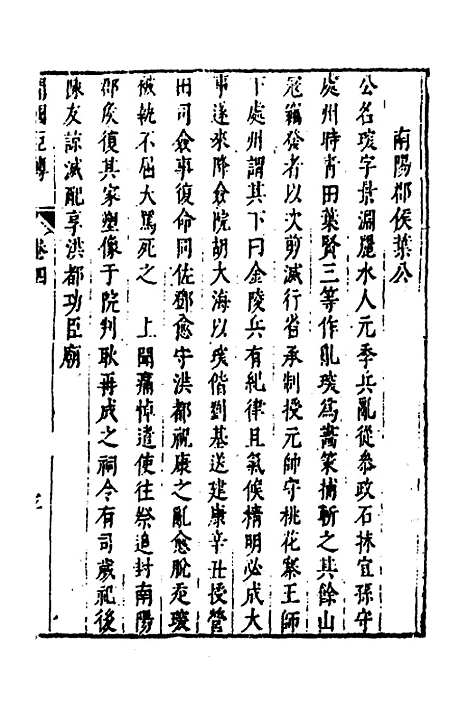 南陽郡侯葉公
公名琛字景淵麗水人元季兵亂從叅政石抹宜孫守
處州時青田葉賢三等作亂琛爲畫策捕斬之其餘山
冦竊發者以次剪滅行省承制授元帥守桃花寨王師
下處州謂其下曰金陵兵有紀律且氣候精明必成大
事遂來降僉院胡大海以琛偕劉基送建康辛丑授營
田司僉事復命同佐鄧愈守洪都祝康之亂愈脫走琛
被執不屈大罵死之　上聞痛悼遣使往祭追封南陽
郡侯復其家塑像于院判耿再成之祠令有司歲祀後
陳友諒滅配享洪都功臣廟
開國臣傳
卷四